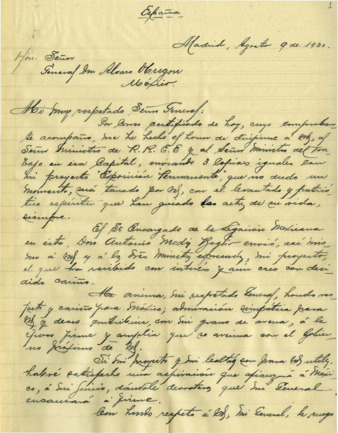 España
1
Madrid, Agosto 9 de 1920.
Señor
General Don Alvaro Obregon
México.
Mi muy respetado Señor General:
Por correo certificado de hoy, cuyo comprobante
te acompaño, me he hecho el honor de dirigirme á Vd, al
Señor Ministro de R.R.E.E y al Señor Ministro del Tra
bajo en esa Capital, enviando 3 Copias iguales con
mi proyecto Exposición Permanente, que no dudo un
momento, será tomado por Vd, con el levantado y patrió
tico espíritu que han guiado los actos de su vida,
siempre.
El Encargado de la Legación Mexicana
en ésta, Don Antonio Mediz Bolio envió, así mis
mo á Vd y á los Sres Ministros, mi proyecto,
el que ha recibido con interés y aun creo con deci
dido cariño.
Me anima, mi respetado General, hondo res
peto y cariño para México; admiración simpática para
Vd y deseo contribuir, con mi grano de arena, á la
firme y amplia que se avecina con el Gobier
no próximo de Vd.
Si mi proyecto y mi lealtad son para Vd útiles,
habré satisfecho una aspiración que á Méxi
co, á mi juicio, dándole derrotero que mi General
encauzará á firme.
Con hondo respeto á Vd, mi General, le ruego